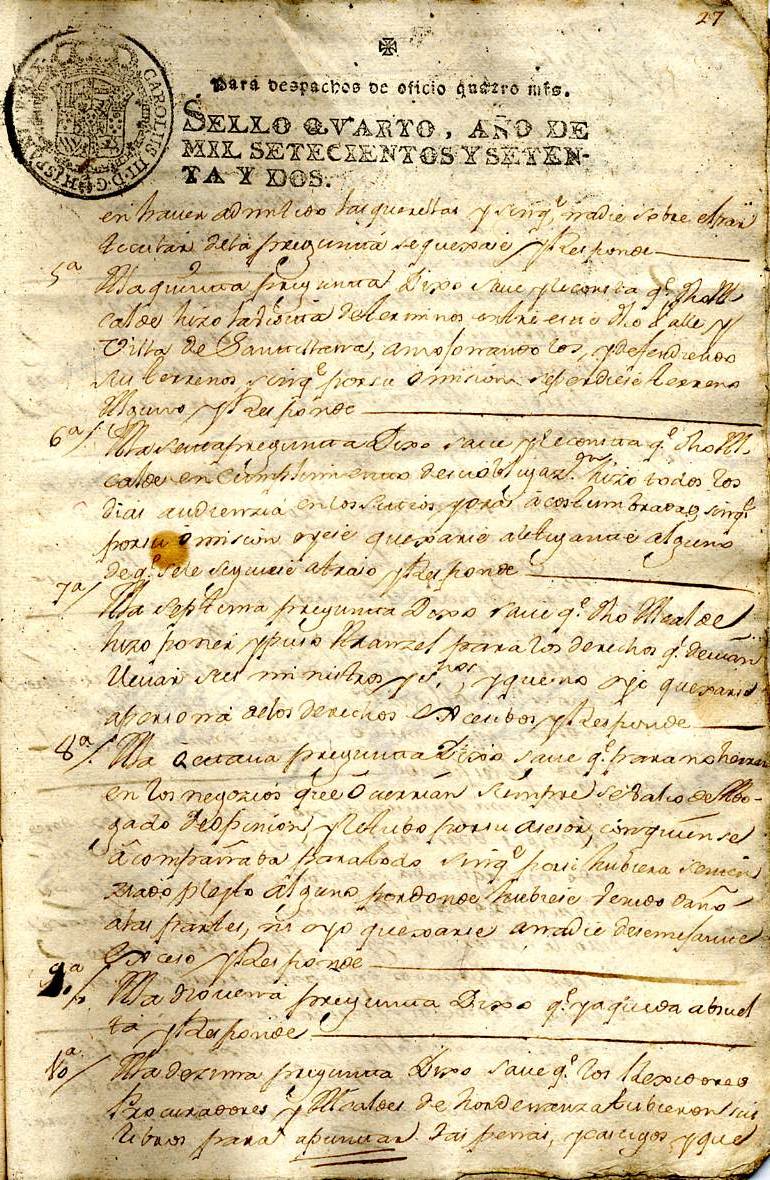 27
CAROLUS III D. G. HISPANIAR. REX
Para despachos de oficio quatro mrs.
SELLO QVARTO, AÑO DE
MIL SETECIENTOS Y SETEN-
TA Y DOS.
en haver admitido las querellas y sin q.e nadie sobre el par
ticular de la pregunta se quexase y Responde
5ª A la quinta pregunta Dixo save y le consta q.e dho Al
calde hizo la de terminos entre este dho Valle y
Villa de Santillana, amojonando los, y defendiendo
su terreno, sin q.e por su omision se perdiese terreno
Alguno y Responde
6ª A la sexta pregunta Dixo save y le consta q.e dho Al
calde en Cumplimiento de su obligaz.on hizo todos los
dias audienzia en los sitios y oras acostumbradas, sin q.e
por su omision oyese quexarse a litigante alguno
de q.e se le siguiese atraso y Responde
7ª A la septima pregunta Dixo save q.e dho Alcalde
hizo poner y puso Aranzel para los derechos q.e devian
llevar sus ministros y ess.nos, y que no oyo quexarse
a persona de los derechos Excesibos y Responde
8ª A la Octava pregunta Dixo save q.e para no herrar
en los negozios que ocurrian siempre se valio de Abo-
gado de opinion, y le tubo por su asesor, con quien se
acompañaba para todo sin q.e por si hubiera senten
ziado pleyto alguno por donde hubiese venido daño
a las partes, ni oyo quexarse a nadie de semejante
Exceso y Responde
9ª A la novena pregunta Dixo q.e ya queda absuel
ta y Responde
10ª A la dezima pregunta Dixo save q.e los Rexidores
Procuradores y Alcaldes de hordenanza tubieron sus
libros para apuntar las penas, y castigos y que